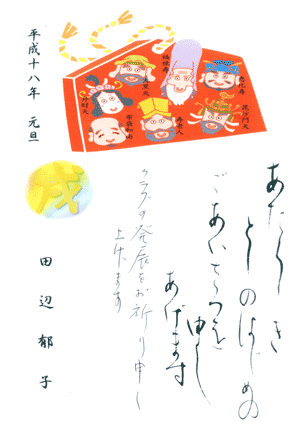 あたらしき
としのはじめの
ごあいさつを
申し
あげます
クラブの発展をお祈り申し
上げます
福禄寿
恵比寿
大黒天
毘沙門天
弁財天
寿老人
布袋和尚
平成十八年 元旦
戌
田辺郁子